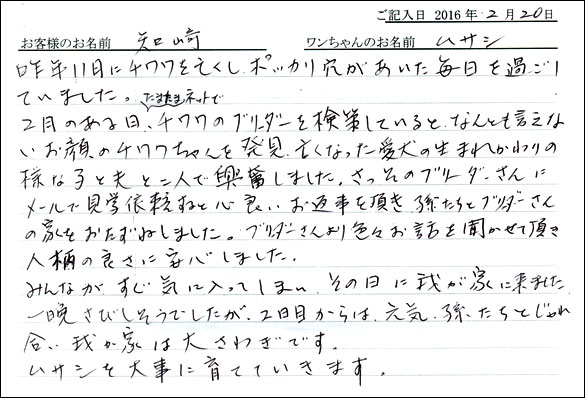 ご記入日 2016 年 2 月 20 日
お客様のお名前 矢口崎 ワンちゃんのお名前 ムサシ
昨年11月にチワワを亡くし、ポッカリ穴があいた毎日を過ごし
ていました。
たまたまネットで
2月のある日、チワワのブリーダーを検索していると、なんとも言えな
いお顔のチワワちゃんを発見、亡くなった愛犬の生まれかわりの
様な子と夫と二人で興奮しました。さっそくブリーダーさんに
メールで見学依頼すると心良いお返事を頂き孫たちとブリーダーさん
の家をおたずねしました。ブリーダーさんより色々お話を聞かせて頂き
人柄の良さに安心しました。
みんなが、すぐ気に入ってしまい、その日に我が家に来ました
一晩さびしそうでしたが、2日目からは、元気、孫たちとじゃれ
合い我が家は大さわぎです。
ムサシを大事に育てていきます。